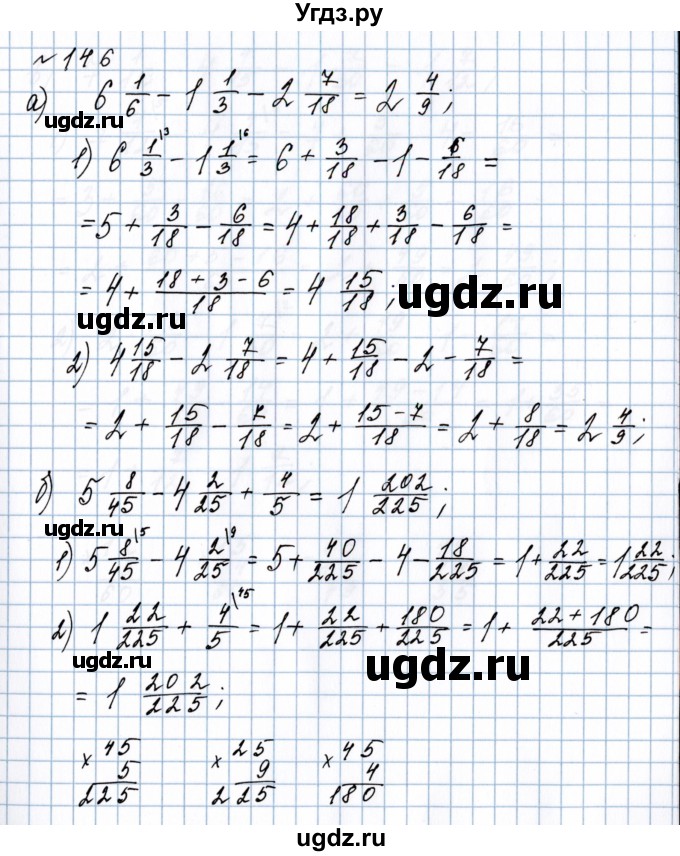 Угдз.ру
№ 146
а) 6 1/6 - 1 1/3 - 2 7/18 = 2 4/9;
ugdz.ru
1) 6 1/3 \3 - 1 1/3 \6 = 6 + 3/18 - 1 - 6/18 =
= 5 + 3/18 - 6/18 = 4 + 18/18 + 3/18 - 6/18 =
= 4 + (18 + 3 - 6)/18 = 4 15/18;
ugdz.ru
ugdz.ru
2) 4 15/18 - 2 7/18 = 4 + 15/18 - 2 - 7/18 =
= 2 + 15/18 - 7/18 = 2 + (15 - 7)/18 = 2 + 8/18 = 2 4/9;
б) 5 8/45 - 4 2/25 + 4/5 = 1 202/225;
ugdz.ru
1) 5 8/45 \5 - 4 2/25 \9 = 5 + 40/225 - 4 - 18/225 = 1 + 22/225 = 1 22/225;
2) 1 22/225 + 4/5 \45 = 1 + 22/225 + 180/225 = 1 + (22 + 180)/225 =
ugdz.ru
= 1 202/225;
× 45 × 25 × 45
5 9 4
225 225 180
ugdz.ru
ugdz.ru